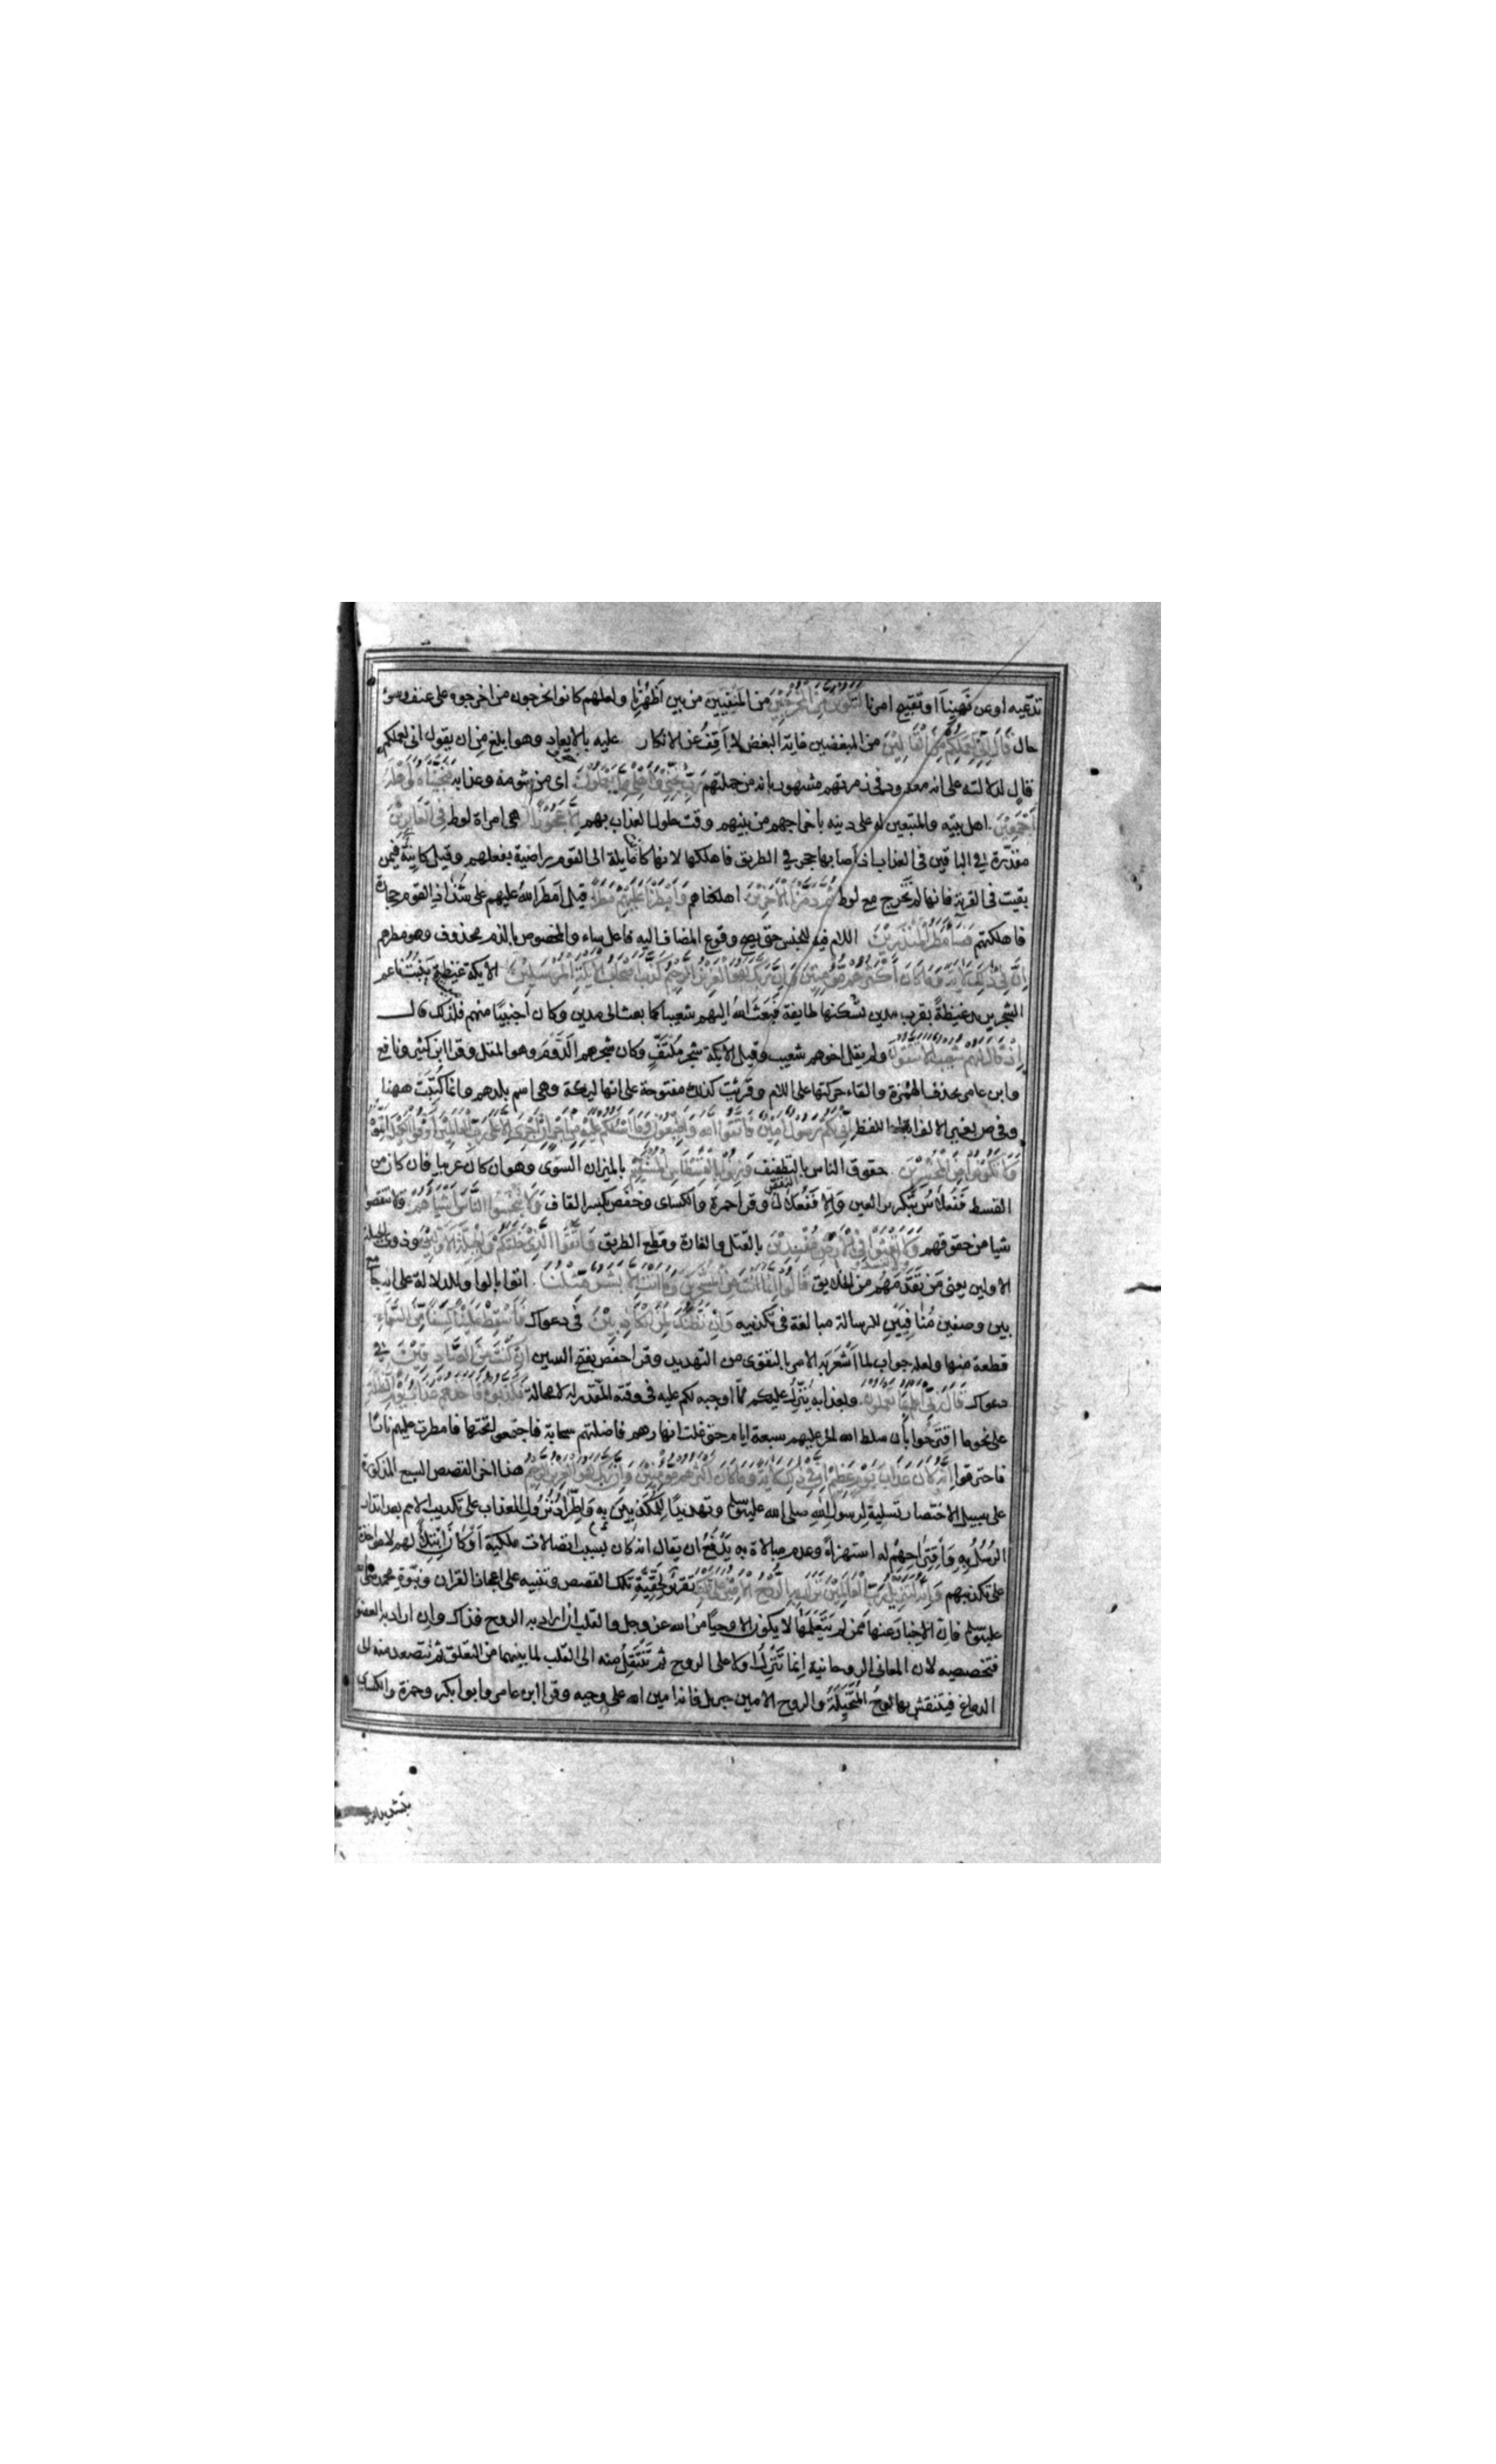 تدعيه او عن نهينا او تقبيح امرنا لتكونن من المخرجين من المنفيين من بين اظهرنا ولعلهم كانوا يخرجون من اخرجوه على عنف وسوء
حال قال اني لعملكم من القالين من المبغضين غاية البغض لا اقف عن الانكار عليه بالايعاد وهو ابلغ من ان يقول اني لعملكم
قال لدلالته على انه معدود في زمرتهم مشهور بانه من جملتهم رب نجني واهلي مما يعملون اى من شومه وعذابه فنجيناه واهله
اجمعين اهل بيته والمتبعين له على دينه باخراجهم من بينهم وقت حلول العذاب بهم الا عجوزا هى امراة لوط فى الغابرين
مقدرة في الباقين فى العذاب اذ اصابها حجر في الطريق فاهلكها لانها كانت مايلة الى القوم راضية بفعلهم وقيل كاينة فيمن
بقيت فى القرية فانها لم تخرج مع لوط ثم دمرنا الاخرين اهلكناهم وامطرنا عليهم مطرا قيل امطر الله عليهم على شذاذ القوم حجارة
فاهلكتهم فساء مطر المنذرين اللام فيه للجنس حتى يصح وقوع المضاف اليه فاعل ساء والمخصوص بالذم محذوف وهو مطرهم
ان في ذلك لاية وما كان اكثرهم مؤمنين وان ربك لهو العزيز الرحيم كذب اصحاب الايكة المرسلين الايكة غيضة تنبت ناعم
الشجر يريد غيضة بقرب مدين تسكنها طايفة فبعث الله اليهم شعيبا كما بعث الى مدين وكان اجنبيا منهم فلذلك قال
اذ قال لهم شعيب الا تتقون ولم يقل اخوهم شعيب وقيل الايكة شجر ملتف وكان شجرهم الدوم وهو المقل وقرا ابن كثير ونافع
وابن عامر بحذف الهمزة والقاء حركتها على اللام وقرئت كذلك مفتوحة على انها ليكة وهى اسم بلدهم وانما كتبت ههنا
وفى ص بغير الالف للفظ انى لكم رسول امين فاتقوا الله واطيعون وما اسئلكم عليه من اجر ان اجرى الا على رب العالمين اوفوا الكيل اتموه
ولا تكونوا من المخسرين حقوق الناس بالتطفيف وزنوا بالقسطاس المستقيم بالميزان السوى وهو ان كان عربيا فان كان من
القسط ففعلاس بتكرير العين والا ففعلال وقرا حمزة والكساى وحفص بكسر القاف ولا تبخسوا الناس اشياءهم ولا تنقصوا
شيا من حقوقهم ولا تعثوا فى الارض مفسدين بالقتل والغارة وقطع الطريق واتقوا الذى خلقكم والجبلة الاولين وذوى الجبلة
الاولين يعنى من تقدمهم من الخلايق قالوا انما انت من المسحرين وما انت الا بشر مثلنا اتوا بالواو للدلالة على انه جامع
بين وصفين منافيين للرسالة مبالغة فى تكذيبه وان نظنك لمن الكاذبين فى دعواك فاسقط علينا كسفا من السماء
قطعة منها ولعله جواب لما اشعر به الامر بالتقوى من التهديد وقرا حفص بفتح السين ان كنت من الصادقين في
دعواك قال ربى اعلم بما تعملون وبعذابه ينزل عليكم مما اوجبه لكم عليه فى وقته المقدر له لا محالة فكذبوه فاخذهم عذاب يوم الظلة
على نحو ما اقترحوا بان سلط الله الحر عليهم سبعة ايام حتى غلت انهارهم فاضلتهم سحابة فاجتمعوا تحتها فامطرت عليهم نارا
فاحترقوا انه كان عذاب يوم عظيم ان في ذلك لاية وما كان اكثرهم مؤمنين وان ربك لهو العزيز الرحيم هذا اخر القصص السبع المذكورة
على سبيل الاختصار تسلية لرسول الله صلى الله عليه وسلم وتهديدا للمكذبين به واطراد نزول العذاب على تكذيب الامم بعد انذار
الرسل به واقتراحهم له استهزاء وعدم مبالاة به يدفع ان يقال انه كان بسبب اتصالات فلكية او كان ابتلاء لهم لا مواخذة
على تكذيبهم وانه لتنزيل رب العالمين نزل به الروح الامين على قلبك تقرير لحقية تلك القصص وتنبيه على اعجاز القران ونبوة محمد صلى الله
عليه وسلم فان الاخبار عنها ممن لم يتعلمها لا يكون الا وحيا من الله عز وجل والقلب ان اراد به الروح فذاك وان اراد به العضو
فتخصيصه لان المعانى الروحانية انما تنزل اولا على الروح ثم تنتقل منه الى القلب لما بينهما من التعلق ثم تتصعد منه الى
الدماغ فينتقش بها لوح المتخيلة والروح الامين جبريل فانه امين الله على وحيه وقرا ابن عامر وابو بكر وحمزة والكساى
بتشديد